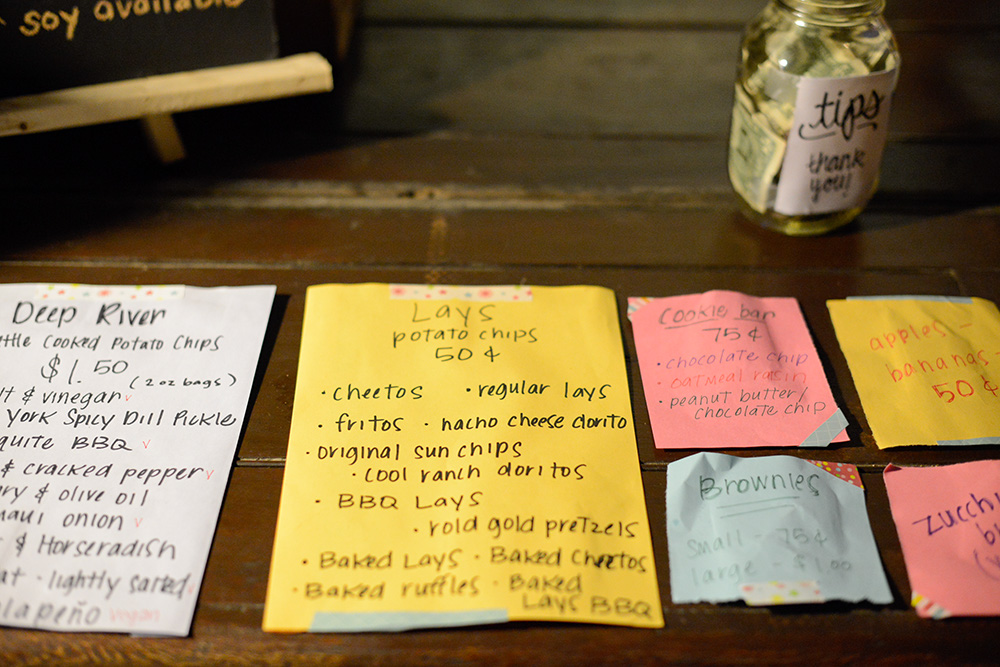 soy available
tips
thank
you!
Deep River
Cooked Potato Chips
$1.50
(2 oz bags)
& vinegar
York Spicy Dill Pickle
BBQ
& cracked pepper
& olive oil
onion
& Horseradish
· lightly salted
vegan
LAYS
potato chips
50¢
· cheetos · regular lays
· fritos · nacho cheese dorito
· original sun chips
· cool ranch doritos
· BBQ LAYS
· rold gold pretzels
· Baked Lays · Baked Cheetos
· Baked ruffles · Baked
Lays BBQ
Cookie bar
75¢
· chocolate chip
· oatmeal raisin
· peanut butter/
chocolate chip
apples -
bananas
50¢
Brownies
small - 75¢
large - $1.00